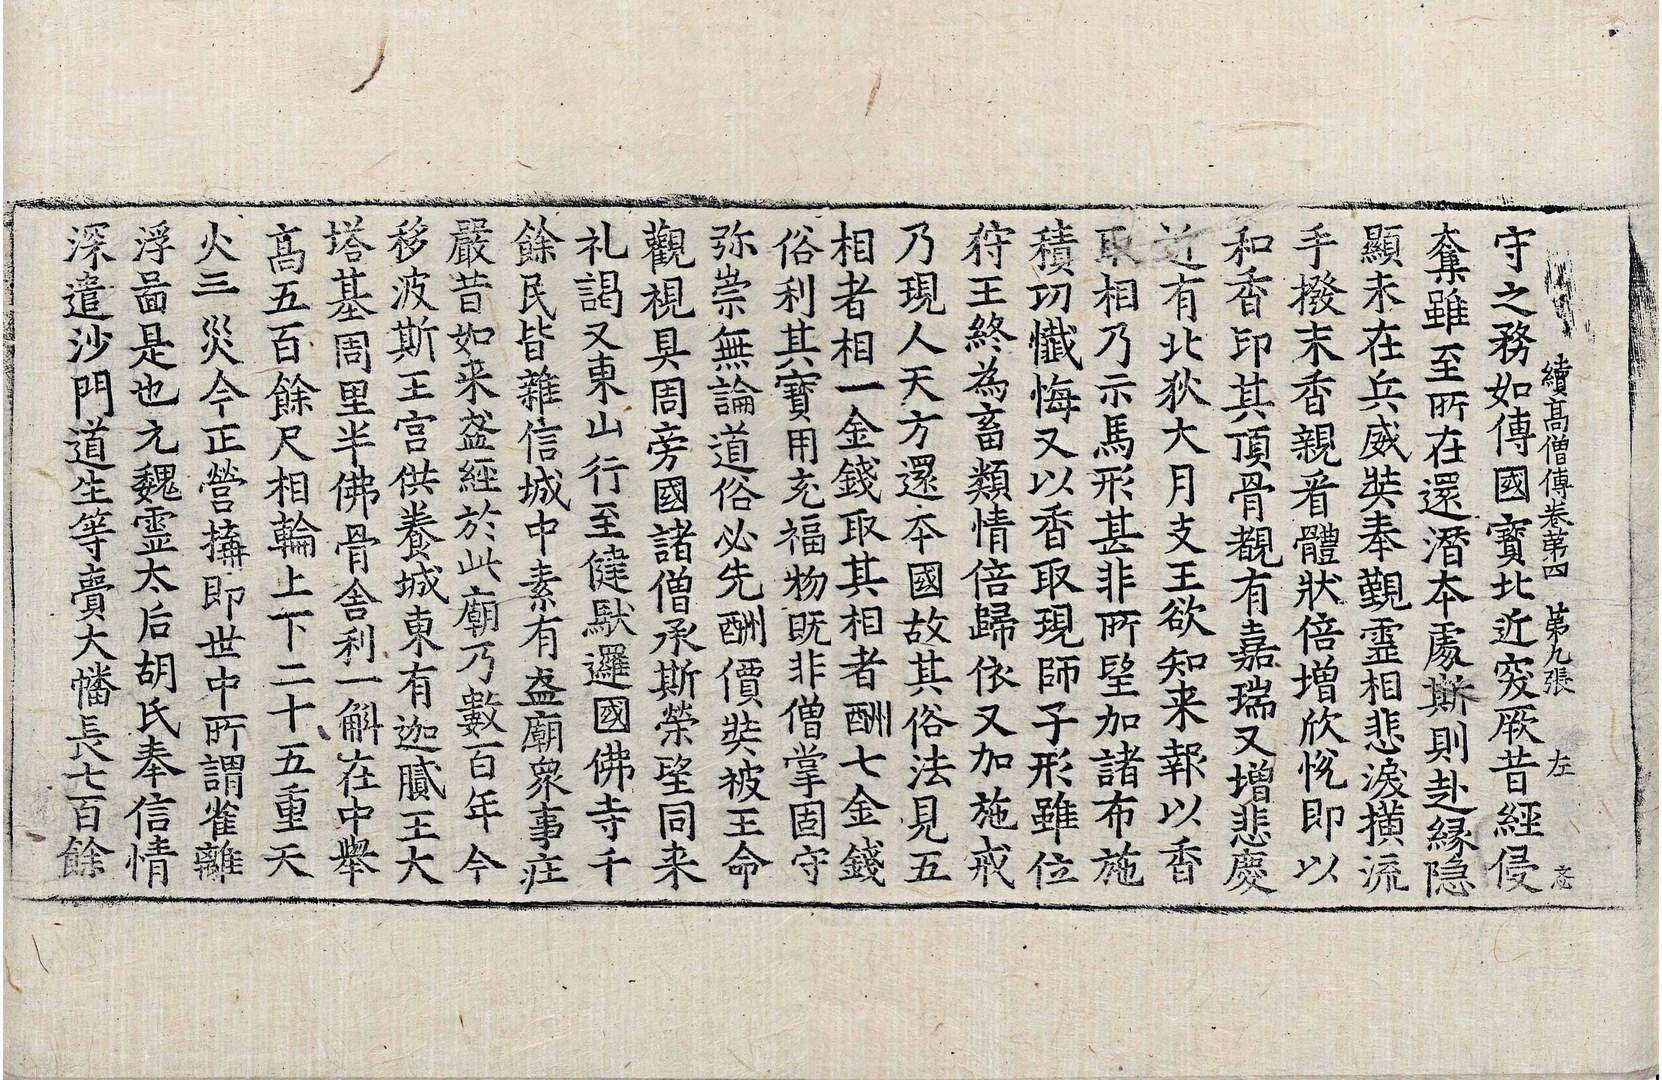 續高僧傳卷第四 第九張 左
守之務如傳國寶北近突厥昔經侵
奪雖至所在還潛本處斯則赴緣隐
顯未在兵威奘奉覲靈相悲淚橫流
手撥末香親看體狀倍增欣悅即以
和香印其頂骨覩有嘉瑞又增悲慶
近有北狄大月支王欲知来報以香
取相乃示馬形甚非所望加諸布施
積功懺悔又以香取現師子形雖位
狩王終為畜類情倍歸依又加施戒
乃現人天方還本國故其俗法見五
相者相一金錢取其相者酬七金錢
俗利其寶用充福物既非僧掌固守
弥崇無論道俗必先酬價奘被王命
觀視具周旁國諸僧承斯榮望同来
礼謁又東山行至健馱邏國佛寺千
餘民皆雜信城中素有盋廟衆事莊
嚴昔如来盋經於此廟乃數百年今
移波斯王宮供養城東有迦膩王大
塔基周里半佛骨舍利一斛在中舉
高五百餘尺相輪上下二十五重天
火三災今正營搆即世中所謂雀離
浮啚是也元魏靈太后胡氏奉信情
深遣沙門道生等賷大幡長七百餘